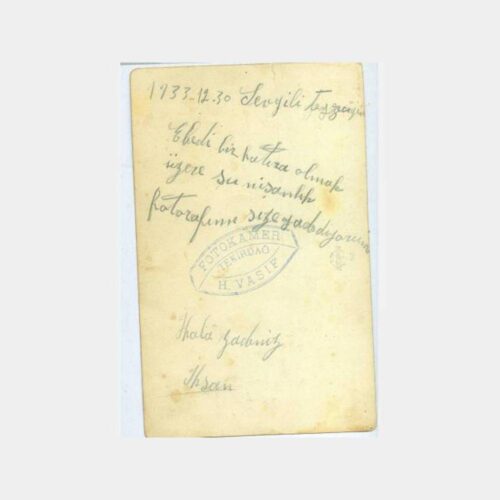 1933-12.30 Sevgili teyzeciğim
Ebedi bir hatıra olmak
üzere su nişanlık
fotorafımı size yadediyorum
FOTOKAMER
TEKİRDAĞ
H. VASIF
Hala zadeniz
İhsan